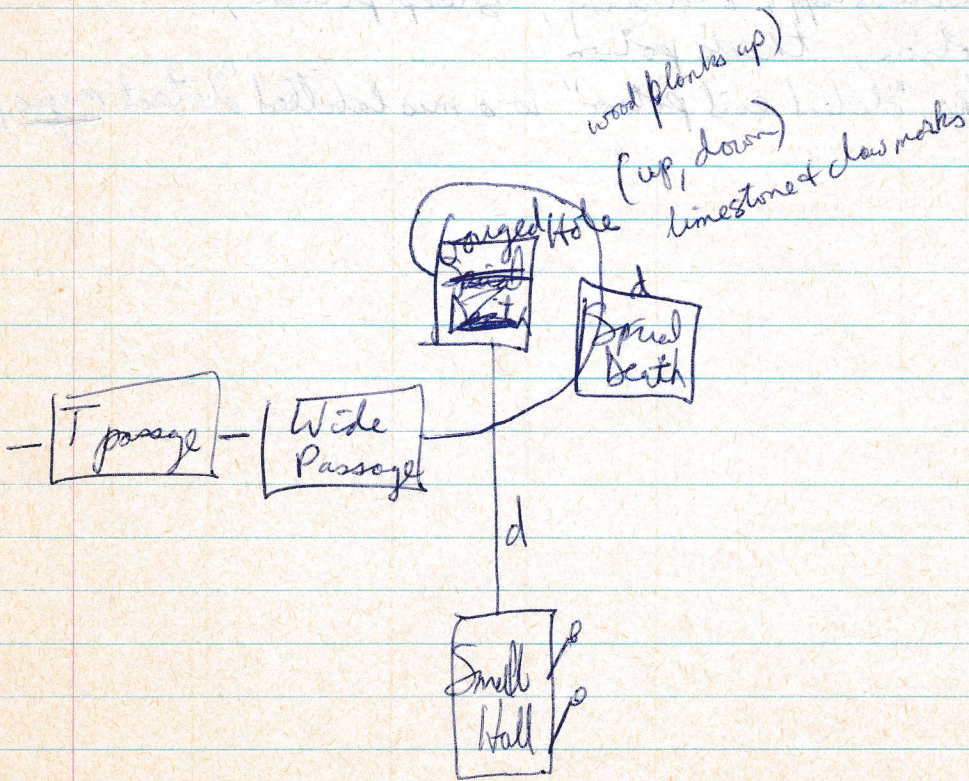 wood planks up)
(up, down)
limestone & claw marks
Gouged Hole
d
Spiral
Death
T passage
Wide
Passage
d
Small
Hall